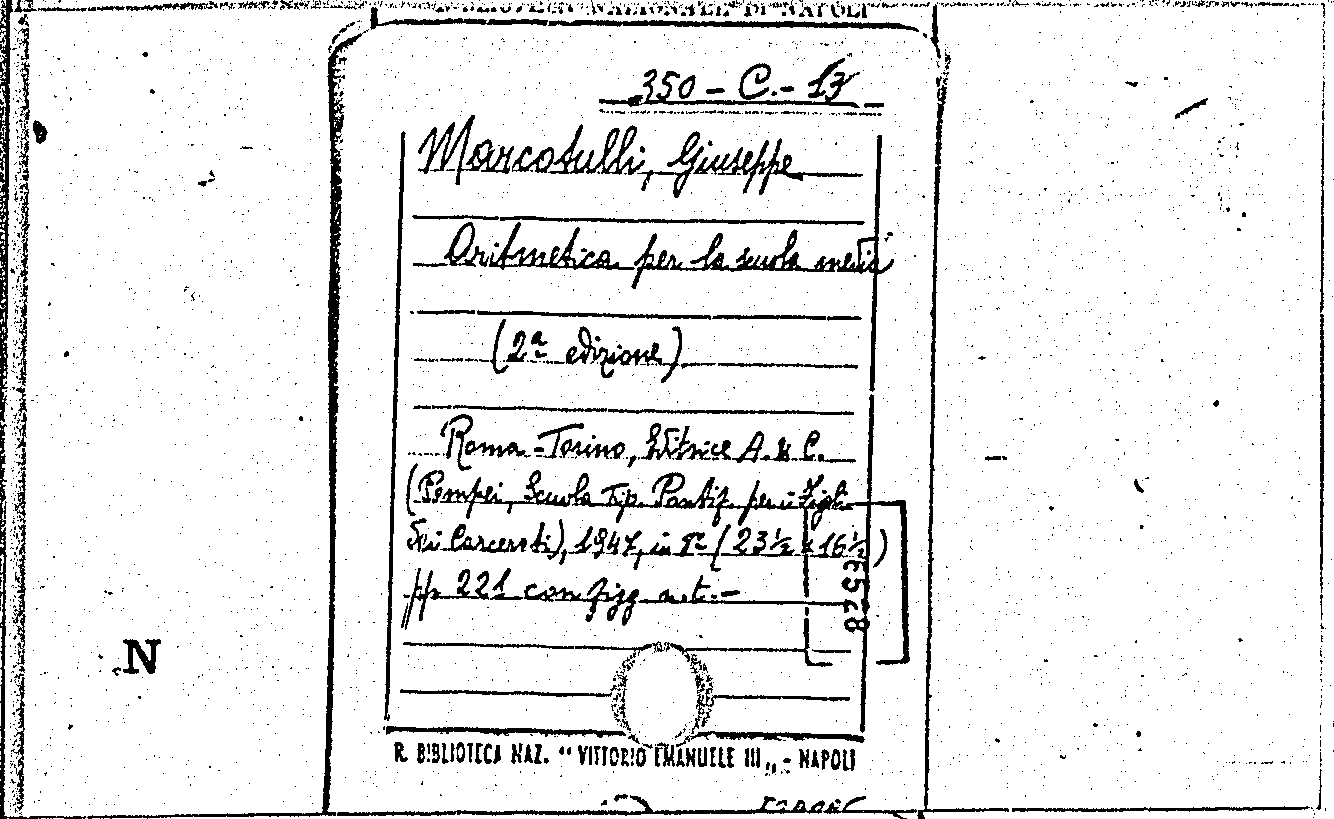 BIBLIOTECA NAZIONALE DI NAPOLI
350 - C. - 13
Marcotulli, Giuseppe
Aritmetica per la scuola media
(2ª edizione)
Roma - Torino, Editrice A. & C.
(Pompei, Scuola Tip. Pontif. per i Figli
dei Carcerati), 1947, in 8º (23½ x 16½)
pp. 221 con figg. n. t. -
N
R. BIBLIOTECA NAZ. “ VITTORIO EMANUELE III „ - NAPOLI